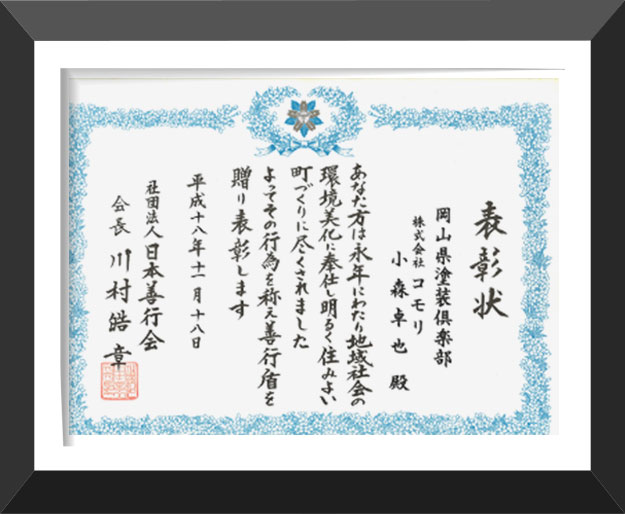 表彰状
岡山県塗装倶楽部
株式会社 コモリ
小森卓也 殿
あなた方は永年にわたり地域社会の
環境美化に奉仕し明るく住みよい
町づくりに尽くされました
よってその行為を称え善行盾を
贈り表彰します
平成十八年十一月十八日
社団法人 日本善行会
会長 川村皓章